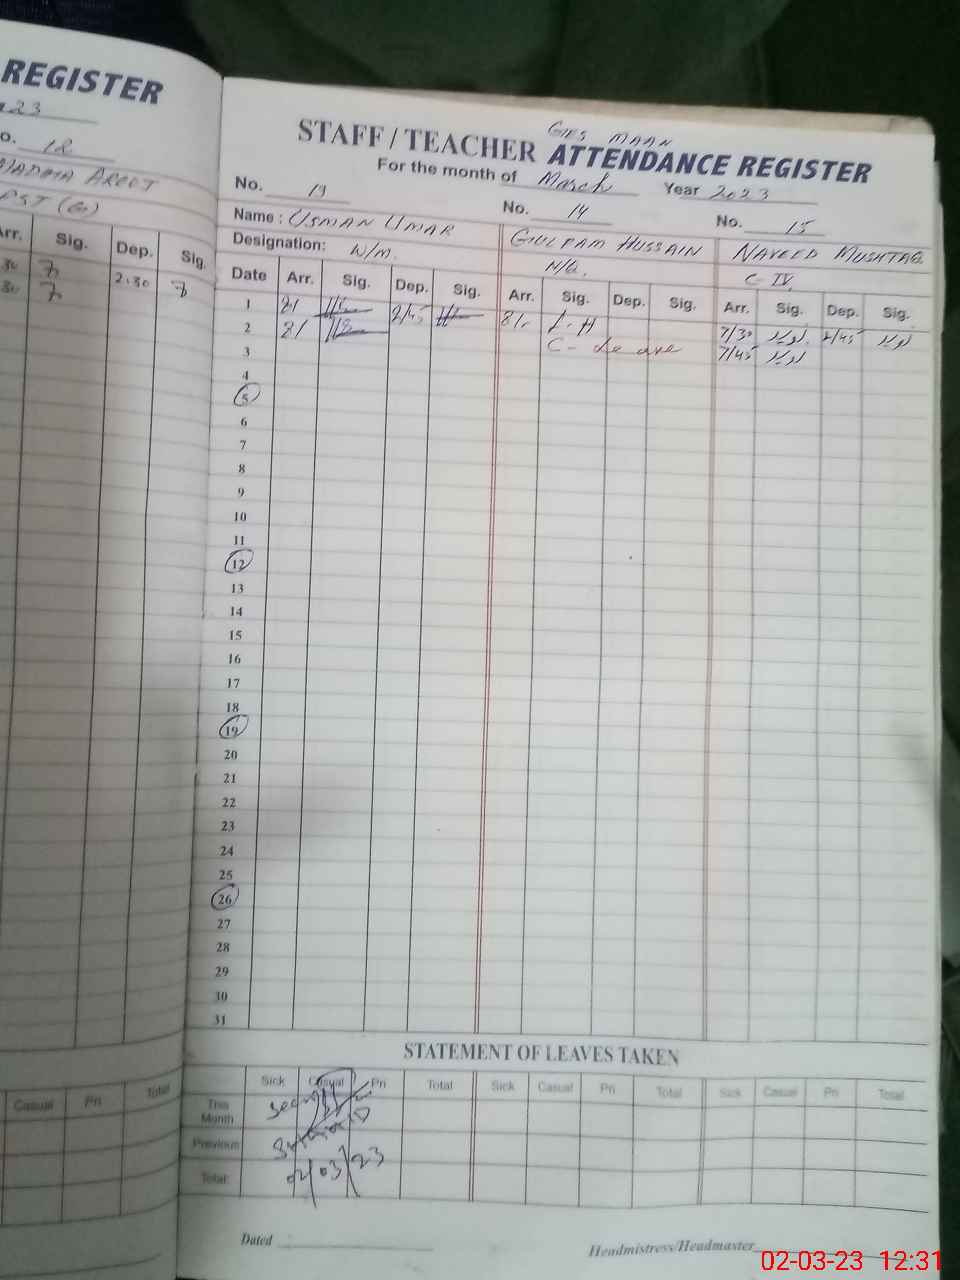 REGISTER
23
o. 12
PST (G)
Arr. Sig. Dep. Sig.
30 2:30
30
Casual Pri Total
GES MAAN
STAFF / TEACHER ATTENDANCE REGISTER
For the month of March Year 2023
No. 13 No. 14 No. 15
Name : USMAN UMAR GULFAM HUSSAIN NAVEED MUSHTAQ
Designation: W/M. N/Q. C-IV.
Date Arr. Sig. Dep. Sig. Arr. Sig. Dep. Sig. Arr. Sig. Dep. Sig.
1 8/ 2/45 8/- L.H 7/30 نوید 2/45 نوید
2 8/ C-Leave 7/45 نوید
3
4
5
6
7
8
9
10
11
12
13
14
15
16
17
18
19
20
21
22
23
24
25
26
27
28
29
30
31
STATEMENT OF LEAVES TAKEN
Sick Casual Pri Total Sick Casual Pri Total Sick Casual Pri Total
This Month
Previous
Total:
02/03/23
Dated
Headmistress/Headmaster
02-03-23 12:31